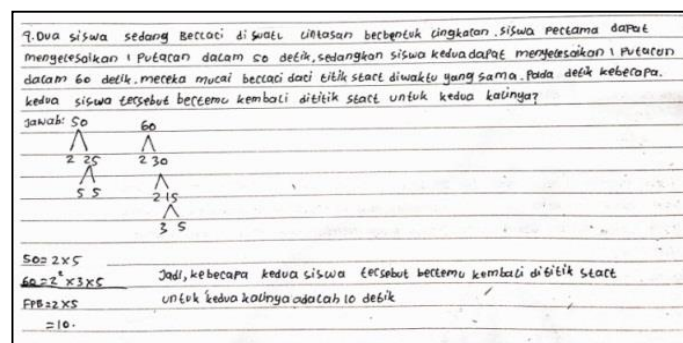 9. Dua siswa sedang Berlari disuatu lintasan berbentuk lingkaran. siswa Pertama dapat
menyelesaikan 1 Putaran dalam 50 detik, sedangkan siswa kedua dapat menyelesaikan 1 Putaran
dalam 60 detik. mereka mulai berlari dari titik start diwaktu yang sama. Pada detik keberapa.
kedua siswa tersebut bertemu kembali dititik start untuk kedua kalinya?
Jawab: 50 60
2 25 2 30
5 5 2 15
3 5
50 = 2 x 5
60 = 2² x 3 x 5 Jadi, keberapa kedua siswa tersebut bertemu kembali dititik start
FPB = 2 x 5 untuk kedua kalinya adalah 10 detik
= 10.